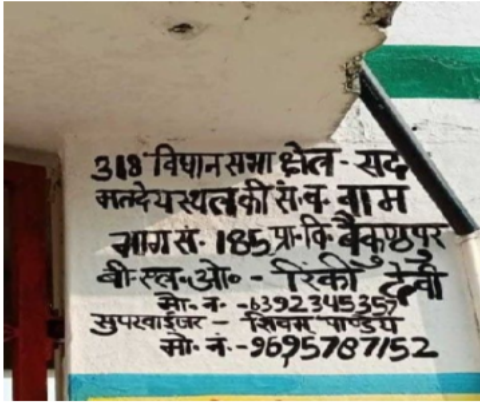 318 विधान सभा क्षेत्र - सदर
मतदेय स्थल की सं. व. नाम
भाग सं. 185 प्रा. वि. बैकुण्ठपुर
बी. एल. ओ. - रिंकी देवी
मो. नं. - 6392345357
सुपरवाईजर - शिवम पाण्डेय
मो. नं. - 9695787152